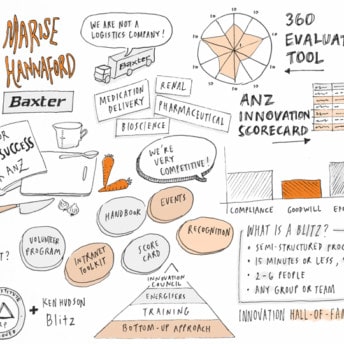 MARISE
HANNAFORD
WE ARE NOT A
LOGISTICS COMPANY!
Baxter
Baxter
MEDICATION
DELIVERY
RENAL
PHARMACEUTICAL
BIOSCIENCE
360
EVALUAT
TOOL
ANZ
INNOVATION
SCORECARD
SUCCESS
ANZ
WE'RE
VERY
COMPETITIVE!
HANDBOOK
EVENTS
VOLUNTEER
PROGRAM
INTRANET
TOOLKIT
SCORE
CARD
RECOGNITION
COMPLIANCE
GOODWILL
WHAT IS A BLITZ?
• SEMI-STRUCTURED PROC
• 15 MINUTES OR LESS,
• 2-6 PEOPLE
• ANY GROUP OR TEAM
INNOVATION HALL-OF-FA
+ KEN HUDSON
Blitz
INNOVATION
COUNCIL
ENERGISERS
TRAINING
BOTTOM-UP APPROACH